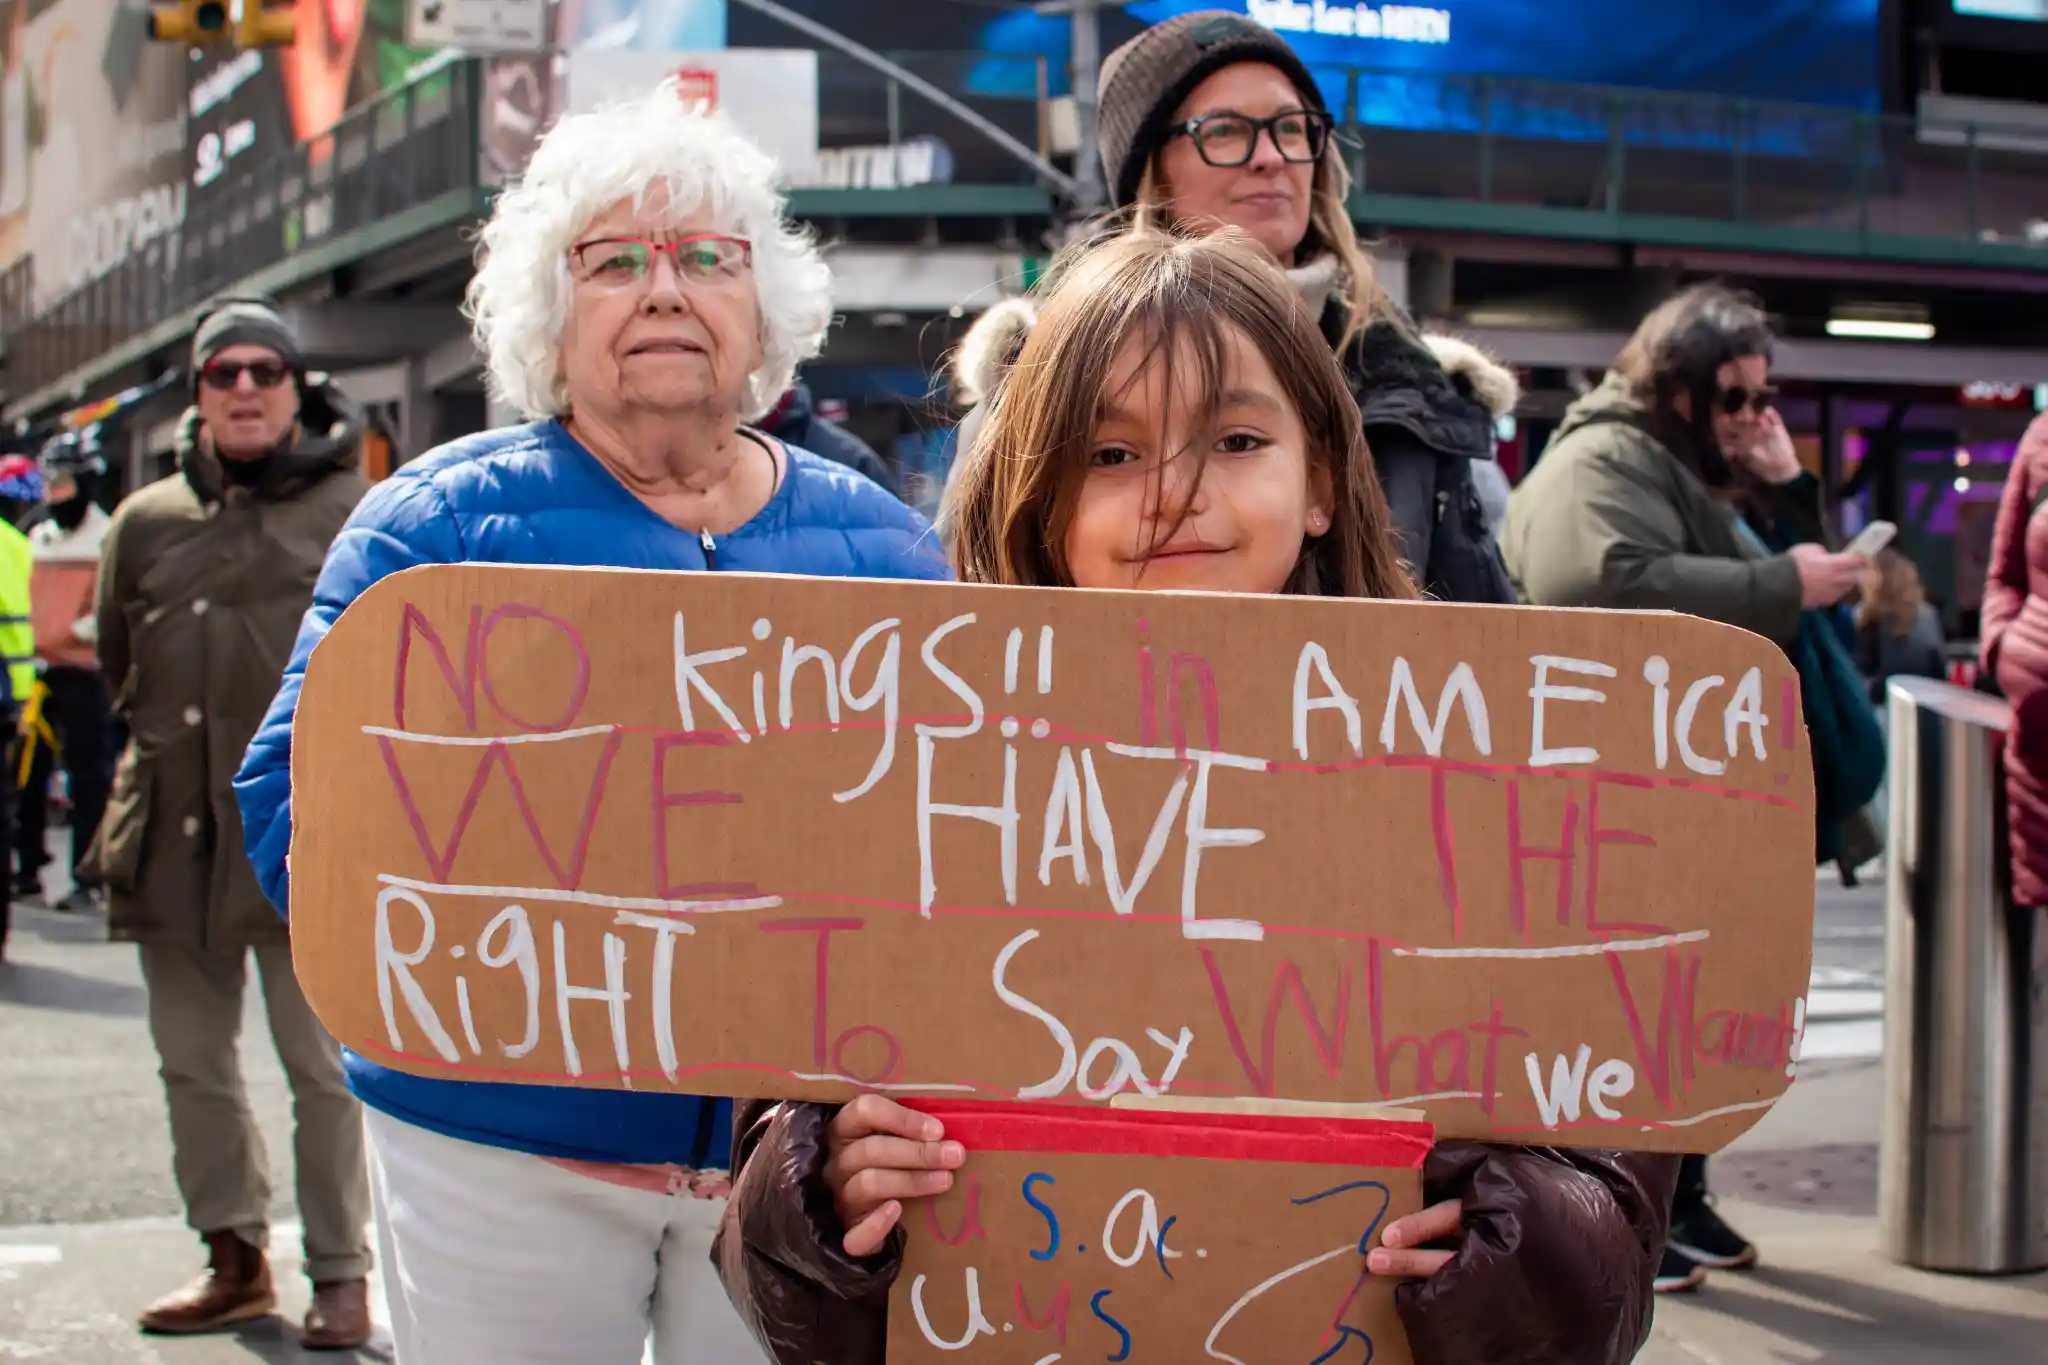 Spike Lee in HERN
NO kings!! in AMEiCA!
WE HAVE THE
RigHT To Say What we Want!
u.s.a.
u.ys